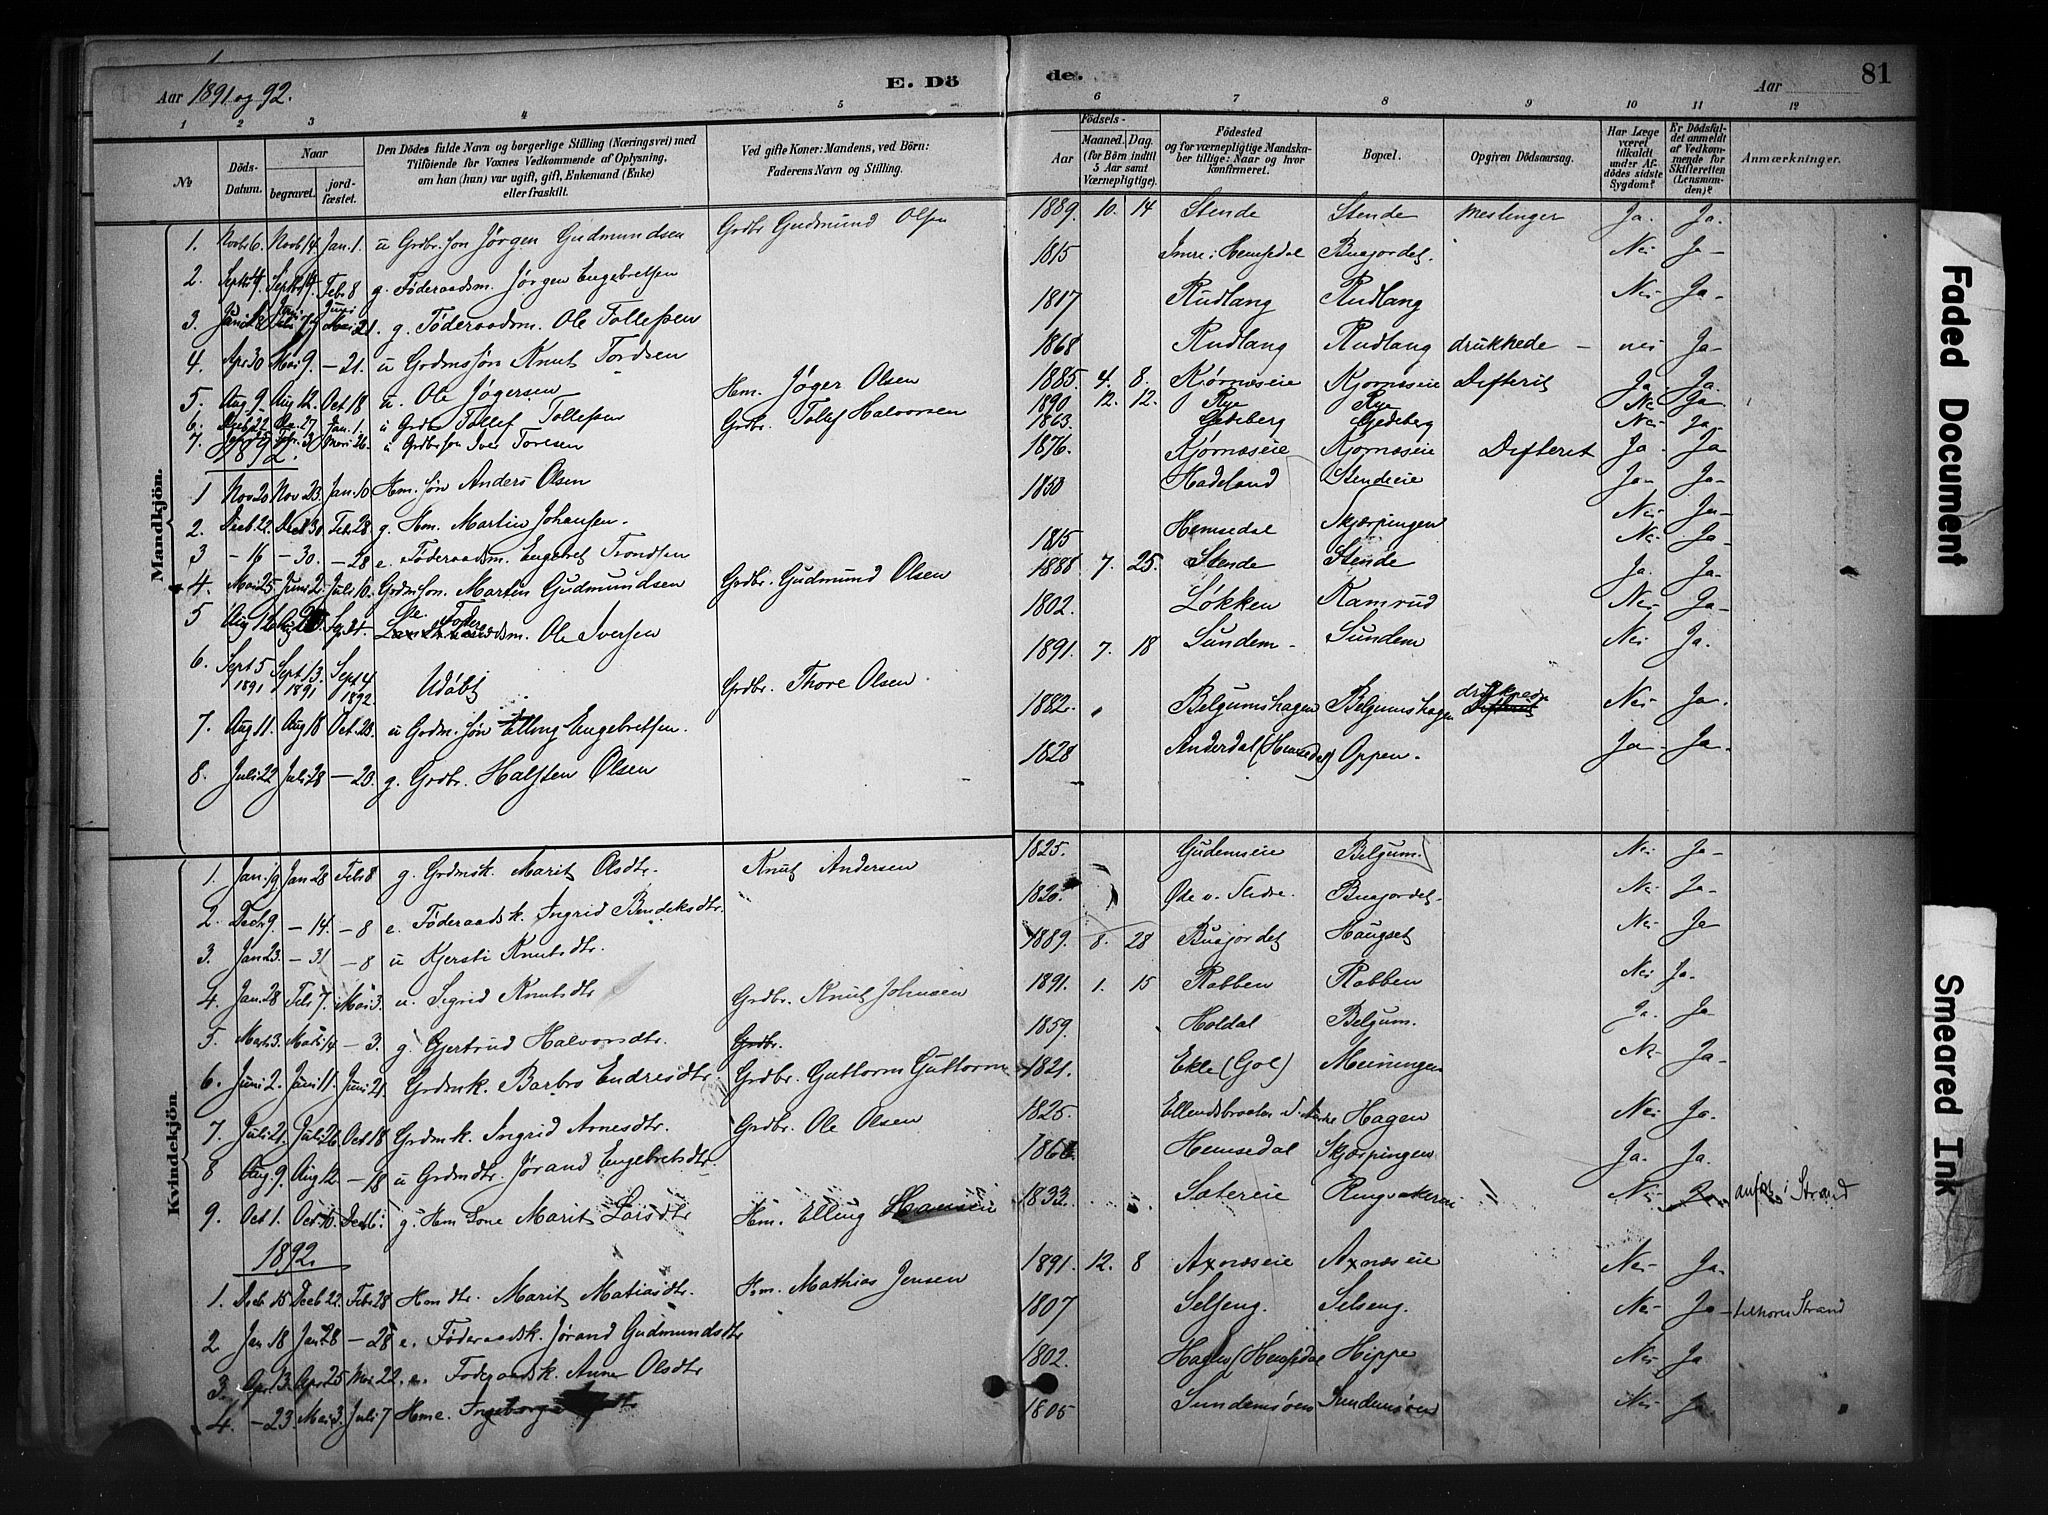 Aar 1891 og 92.
E. Dö
de.
Aar
81
1 2 3 4 5 6 7 8 9 10 11 12
No
Döds-Datum.
Naar
begravet.
jord-fæstet.
Den Dödes fulde Navn og borgerlige Stilling (Næringsvei) med
Tilföiende for Voxnes Vedkommende af Oplysning,
om han (hun) var ugift, gift, Enkemand (Enke)
eller fraskilt.
Ved gifte Koner: Mandens, ved Börn:
Faderens Navn og Stilling.
Födsels-
Aar
Maaned. Dag.
(for Börn indtil
5 Aar samt
Værnepligtige).
Födested
og for værnepligtige Mandska-
ber tillige: Naar og hvor
konfirmeret.
Bopæl.
Opgiven Dödsaarsag.
Har Læge
været
tilkaldt
under Af-
dödes sidste
Sygdom?
Er Dödsfal-
det anmeldt
af Vedkom-
mende for
Skifteretten
(Lensman-
den)?
Anmærkninger.
Mandkjön.
1. Novbr 6. Novb 14. Jan. 1. u Grdbr. søn Jørgen Gudmundsen Grdbr Gudmund Olsen 1889. 10. 14 Stende Stende Meslinger Ja. Ja.
2. Septbr 4. Septbr 14. Feb. 8 g. Føderaadsm. Jørgen Engebretsen 1815 Hemsedal Buajordet. Nei Ja -
3. 21. g. Føderaadsm. Ole Tollefsen 1817 Rudlang Rudlang Nei Ja -
4. Apr 30 Mai 9. - 21. u Grdmssøn Knut Tordsen 1868 Rudlang Rudlang drukknede - nei Ja -
5. Aug 9 Aug 12. Oct 18 u. Ole Jøgersen Hm. Jøger Olsen 1885. 4. 8. Kjørnæseie Kjørnæseie Difterit Ja. Ja.
6. Jan. 1. u Grdbr Tollef Tollefsen Grdbr. Tollef Halvorsen 1890 12. 12. Rye Rye Nei Ja.
7. u Grdbr. søn Iver Toresen 1863 Gedeberg Gjedeberg Nei Ja -
1892.
1 Nov 20 Nov 23. Jan. 10 Hm. søn Anders Olsen 1876. Kjørnæseie Kjørnæseie Difterit Ja. Ja
2. Decb. 22. Decb 30 Feb. 28 g. Hm. Martin Johansen. 1830 Hadeland Stendeeie Ja - Ja -
3 - 16 - 30. - 28 e. Føderaadsm. Engebret Trondsen 1815 Hemsedal Skjærpingen Nei Ja -
4. Mai 25 Juni 2. Juli 10. Grdmsøn. Martin Gudmundsen Grdbr. Gudmund Olsen 1888 7. 25. Stende Stende Nei Ja
5 Aug 12 Føderaadsm. Ole Iversen 1802. Løkken Kamrud Nei Ja -
6. Sept 5 1891 Sept. 13. 1891 Sept 4 1892 Udøbt Grdbr. Thore Olsen 1891. 7. 18 Sundem - Sundem Nei Ja.
7. Aug 11. Aug 18 Oct. 23. u Grdm. søn Elling Engebretsen. 1882. Belgumshagen Belgumshagen druknede Nei Ja.
8. Juli 22 Juli 28 - 23. g. Grdbr. Halsten Olsen 1828 Anderdal (Hemsedal) Oppen. Ja - Ja -
Kvindekjön.
1. Jan. 19 Jan 28 Feb 8 g. Grdmsk. Marit Olsdtr. Knut Andersen 1825. Gudemseie Belgum. Nei Ja -
2. Decb 9. - 14. - 8 e. Føderaadsk. Ingrid Bendiksdtr. 1826. Øde v. Slidre. Buajordet. Nei Ja -
3. Jan 23. - 31 - 8 u Kjersti Knutsdtr 1889. 8. 28 Buajordet Haugset Nei Ja
4. Jan. 28 Feb 7. Mai 3. u. Sigrid Knutsdtr Grdbr. Knut Johnsen 1891. 1. 15 Robben Robben Nei Ja.
5. Marts 3. Marts 14 - 3. g. Gjertrud Halvorsdtr. Grdbr. 1859. Holdal Belgum. Ja. Ja
6. Juni 2. Juni 11. Juni 21. Grdmk. Barbro Endresdtr Grdbr. Guttorm Guttorm 1821. Ekle (Gol) Meiningen Nei Ja -
7. Juli 21. Juli 26. Oct 18 Grdmk. Ingrid Arnesdtr. Grdbr. Ole Olsen 1825. Hagen Nei Ja.
8 Aug. 9 Aug 12. - 18 u Grdmdtr. Jørand Engebretsdtr. Hemsedal Skjærpingen Ja. Ja.
9. Oct 1. Oct 10. g. Hm kone Marit Larsdtr Hm. Elling Hansen 1833. Sætereie Nei Strand
1892.
1. Decb. 15 Decb 22. Feb. 28 Hmdtr. Marit Matiasdtr. Hm. Mathias Jensen 1891. 12. 8 Axnæseie Axnæseie Nei Ja.
2. Jan 18 Jan. 28 - 28 e. Føderaadsk. Jørand Gudmundsdtr 1807 Selseng. Selseng. Nei Ja - tilhører Strand
3. Apr 13. Apr 25 Mai 22. e. Føderaadsk. Anne Olsdtr 1802. Hagen (Hemsedal Hippe Nei Ja
4. - 23. Mai 3. Juli 7 Hme. Ingeborg 1805 Sundemsøen Sundemsøen Nei Ja
Faded Document
Smeared Ink